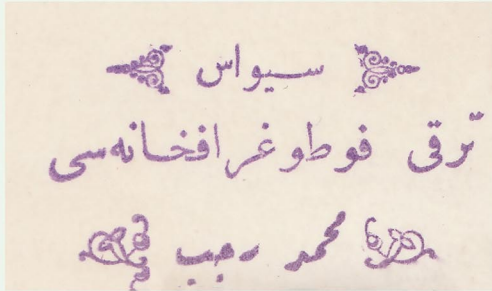 سيواس
ترقى فوطوغرافخانه‌سى
محمد رجب